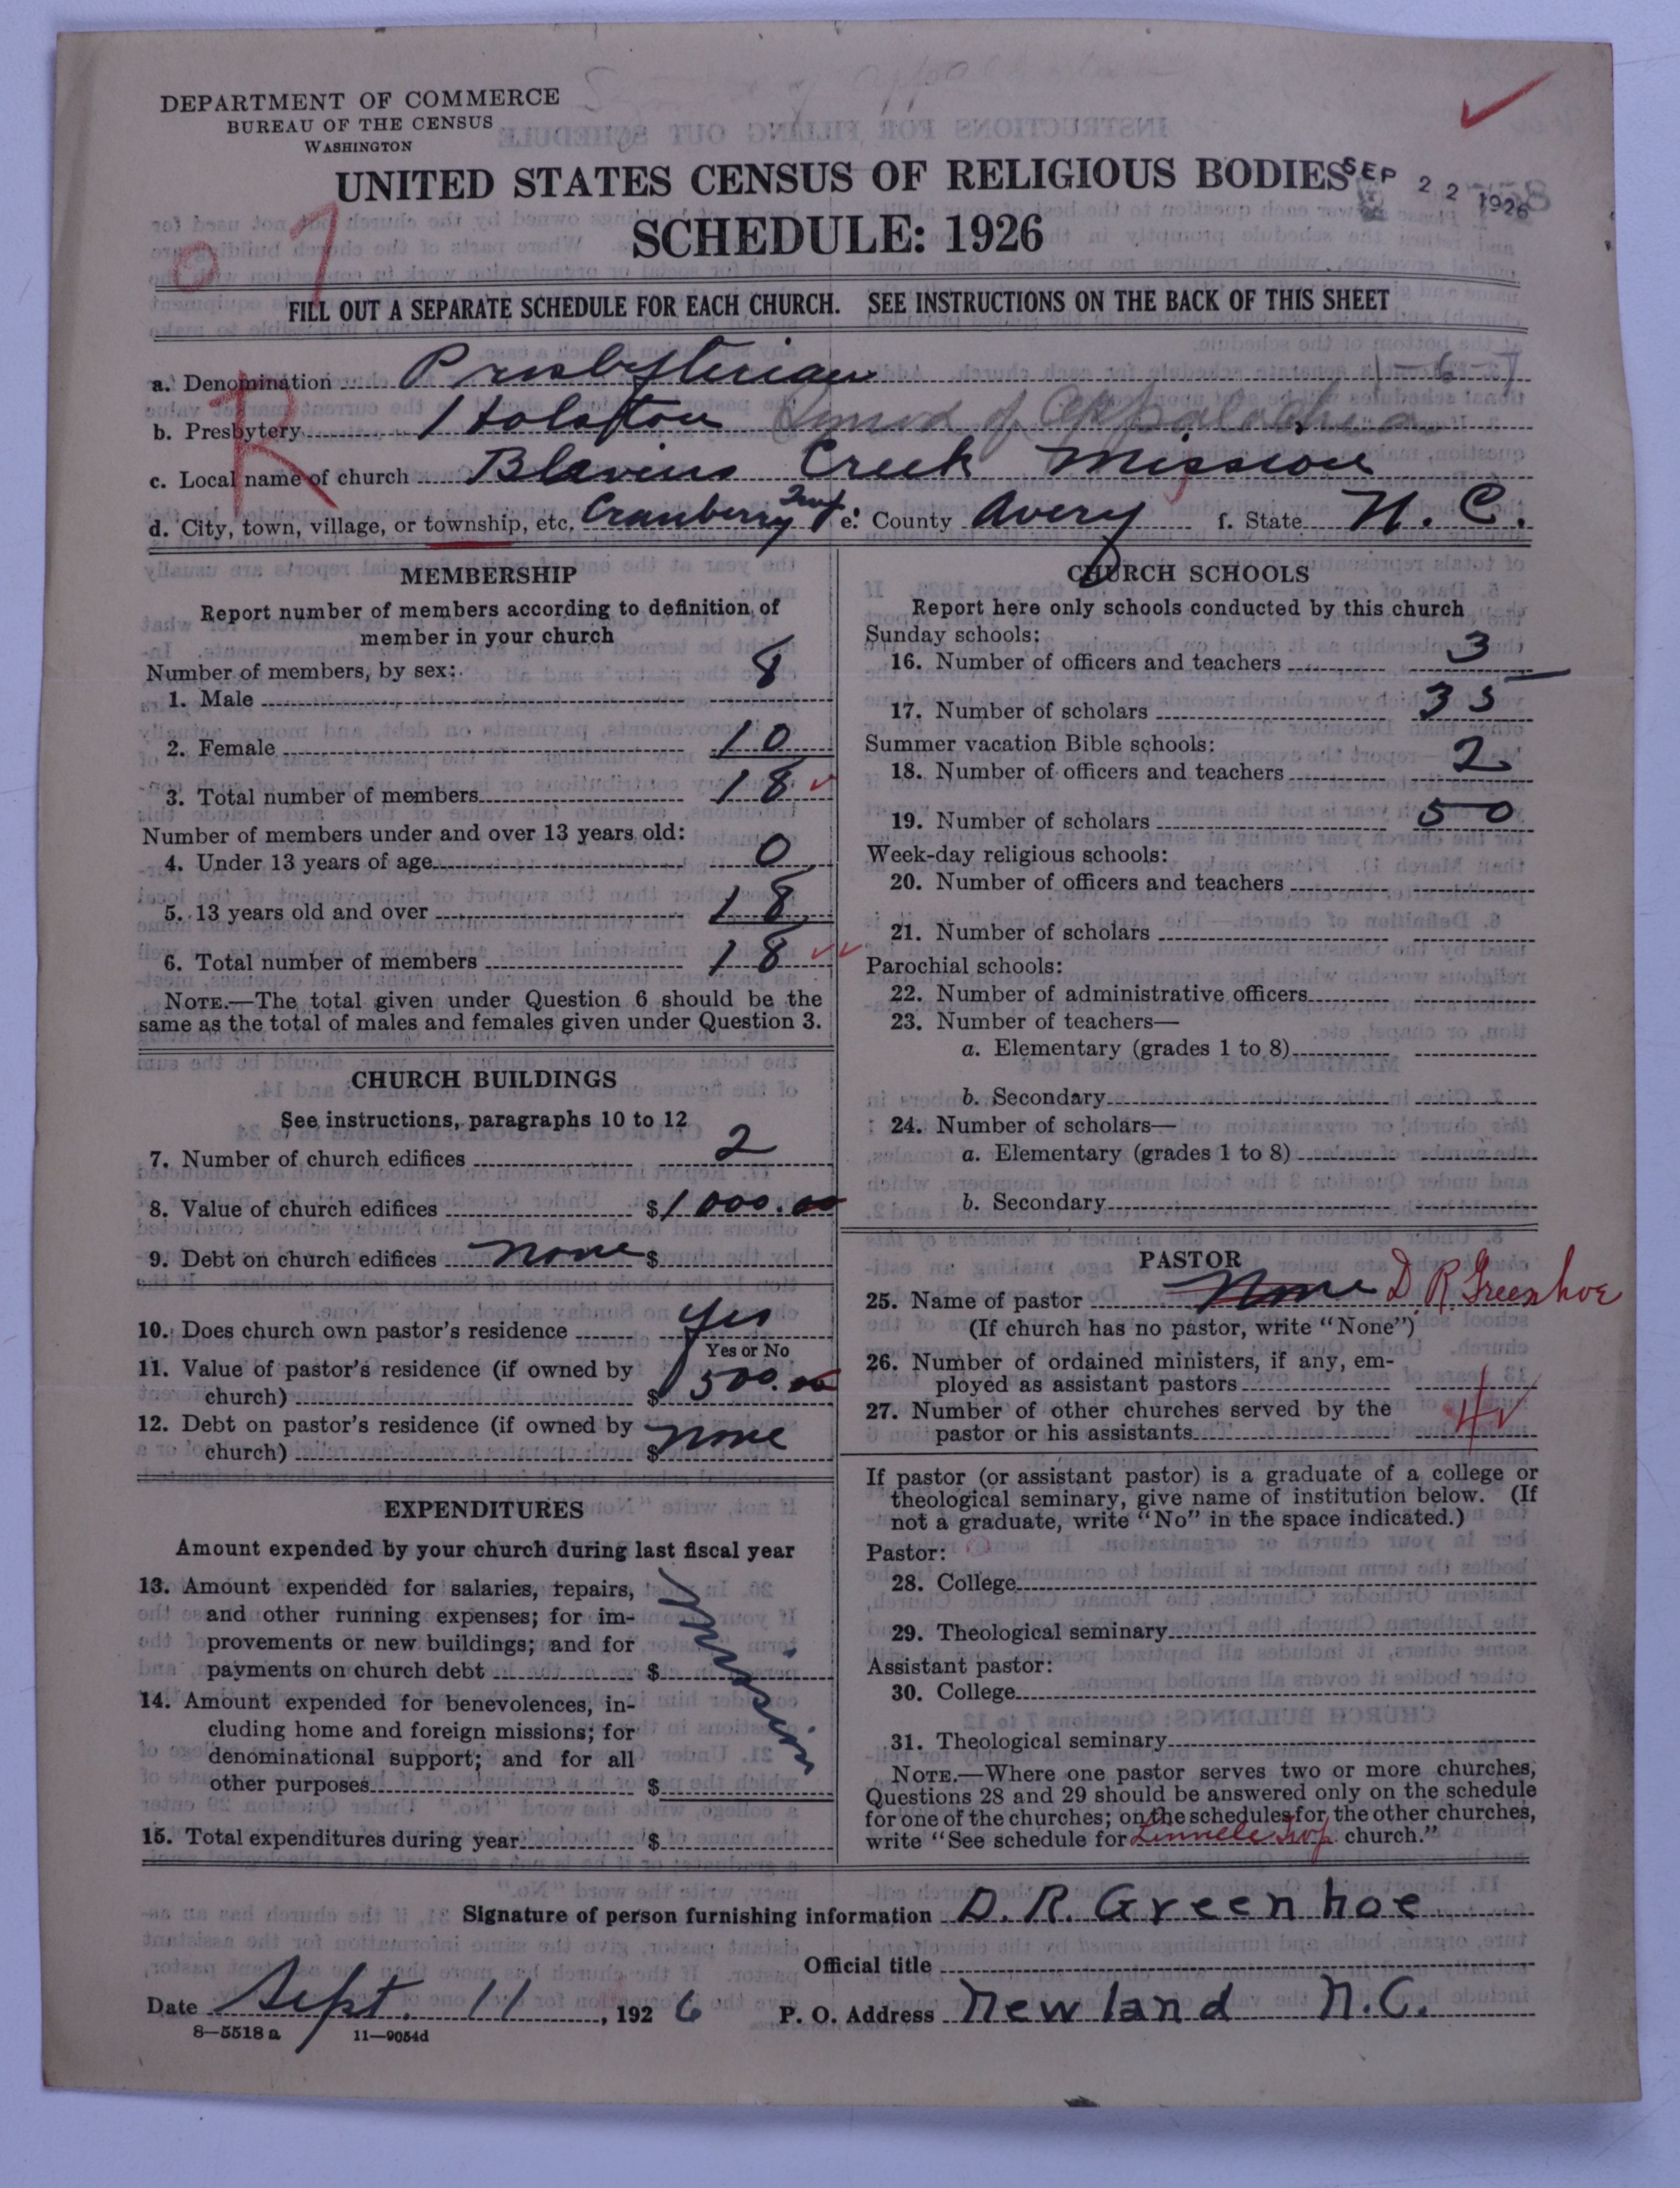 DEPARTMENT OF COMMERCE
BUREAU OF THE CENSUS
WASHINGTON
UNITED STATES CENSUS OF RELIGIOUS BODIES
SEP 22 1926
SCHEDULE: 1926
FILL OUT A SEPARATE SCHEDULE FOR EACH CHURCH. SEE INSTRUCTIONS ON THE BACK OF THIS SHEET
R
a. Denomination Presbyterian 1-6-7
b. Presbytery Holston Synod of Appalachia
c. Local name of church Blevins Creek Mission
d. City, town, village, or township, etc. Cranberry Twp e. County Avery f. State N. C.
MEMBERSHIP
Report number of members according to definition of
member in your church
Number of members, by sex:
1. Male 8
2. Female 10
3. Total number of members 18
Number of members under and over 13 years old:
4. Under 13 years of age 0
5. 13 years old and over 18
6. Total number of members 18
NOTE.—The total given under Question 6 should be the
same as the total of males and females given under Question 3.
CHURCH BUILDINGS
See instructions, paragraphs 10 to 12
7. Number of church edifices 2
8. Value of church edifices $1000.00
9. Debt on church edifices none $
10. Does church own pastor's residence yes
Yes or No
11. Value of pastor's residence (if owned by
church) $ 500.00
12. Debt on pastor's residence (if owned by
church) $ none
EXPENDITURES
Amount expended by your church during last fiscal year
13. Amount expended for salaries, repairs,
and other running expenses; for im-
provements or new buildings; and for
payments on church debt $
Mission
14. Amount expended for benevolences, in-
cluding home and foreign missions; for
denominational support; and for all
other purposes $
15. Total expenditures during year $
CHURCH SCHOOLS
Report here only schools conducted by this church
Sunday schools:
16. Number of officers and teachers 3
17. Number of scholars 35
Summer vacation Bible schools:
18. Number of officers and teachers 2
19. Number of scholars 50
Week-day religious schools:
20. Number of officers and teachers
21. Number of scholars
Parochial schools:
22. Number of administrative officers
23. Number of teachers—
a. Elementary (grades 1 to 8)
b. Secondary
24. Number of scholars—
a. Elementary (grades 1 to 8)
b. Secondary
PASTOR
25. Name of pastor None D. R Greenhoe
(If church has no pastor, write "None")
26. Number of ordained ministers, if any, em-
ployed as assistant pastors
27. Number of other churches served by the
pastor or his assistants 4
If pastor (or assistant pastor) is a graduate of a college or
theological seminary, give name of institution below. (If
not a graduate, write "No" in the space indicated.)
Pastor:
28. College
29. Theological seminary
Assistant pastor:
30. College
31. Theological seminary
NOTE.—Where one pastor serves two or more churches,
Questions 28 and 29 should be answered only on the schedule
for one of the churches; on the schedules for the other churches,
write "See schedule for Linville Twp. church."
Signature of person furnishing information D. R. Greenhoe
Official title
Date Sept. 11, 1926 P. O. Address Newland N.C.
8—5518 a 11—9054d